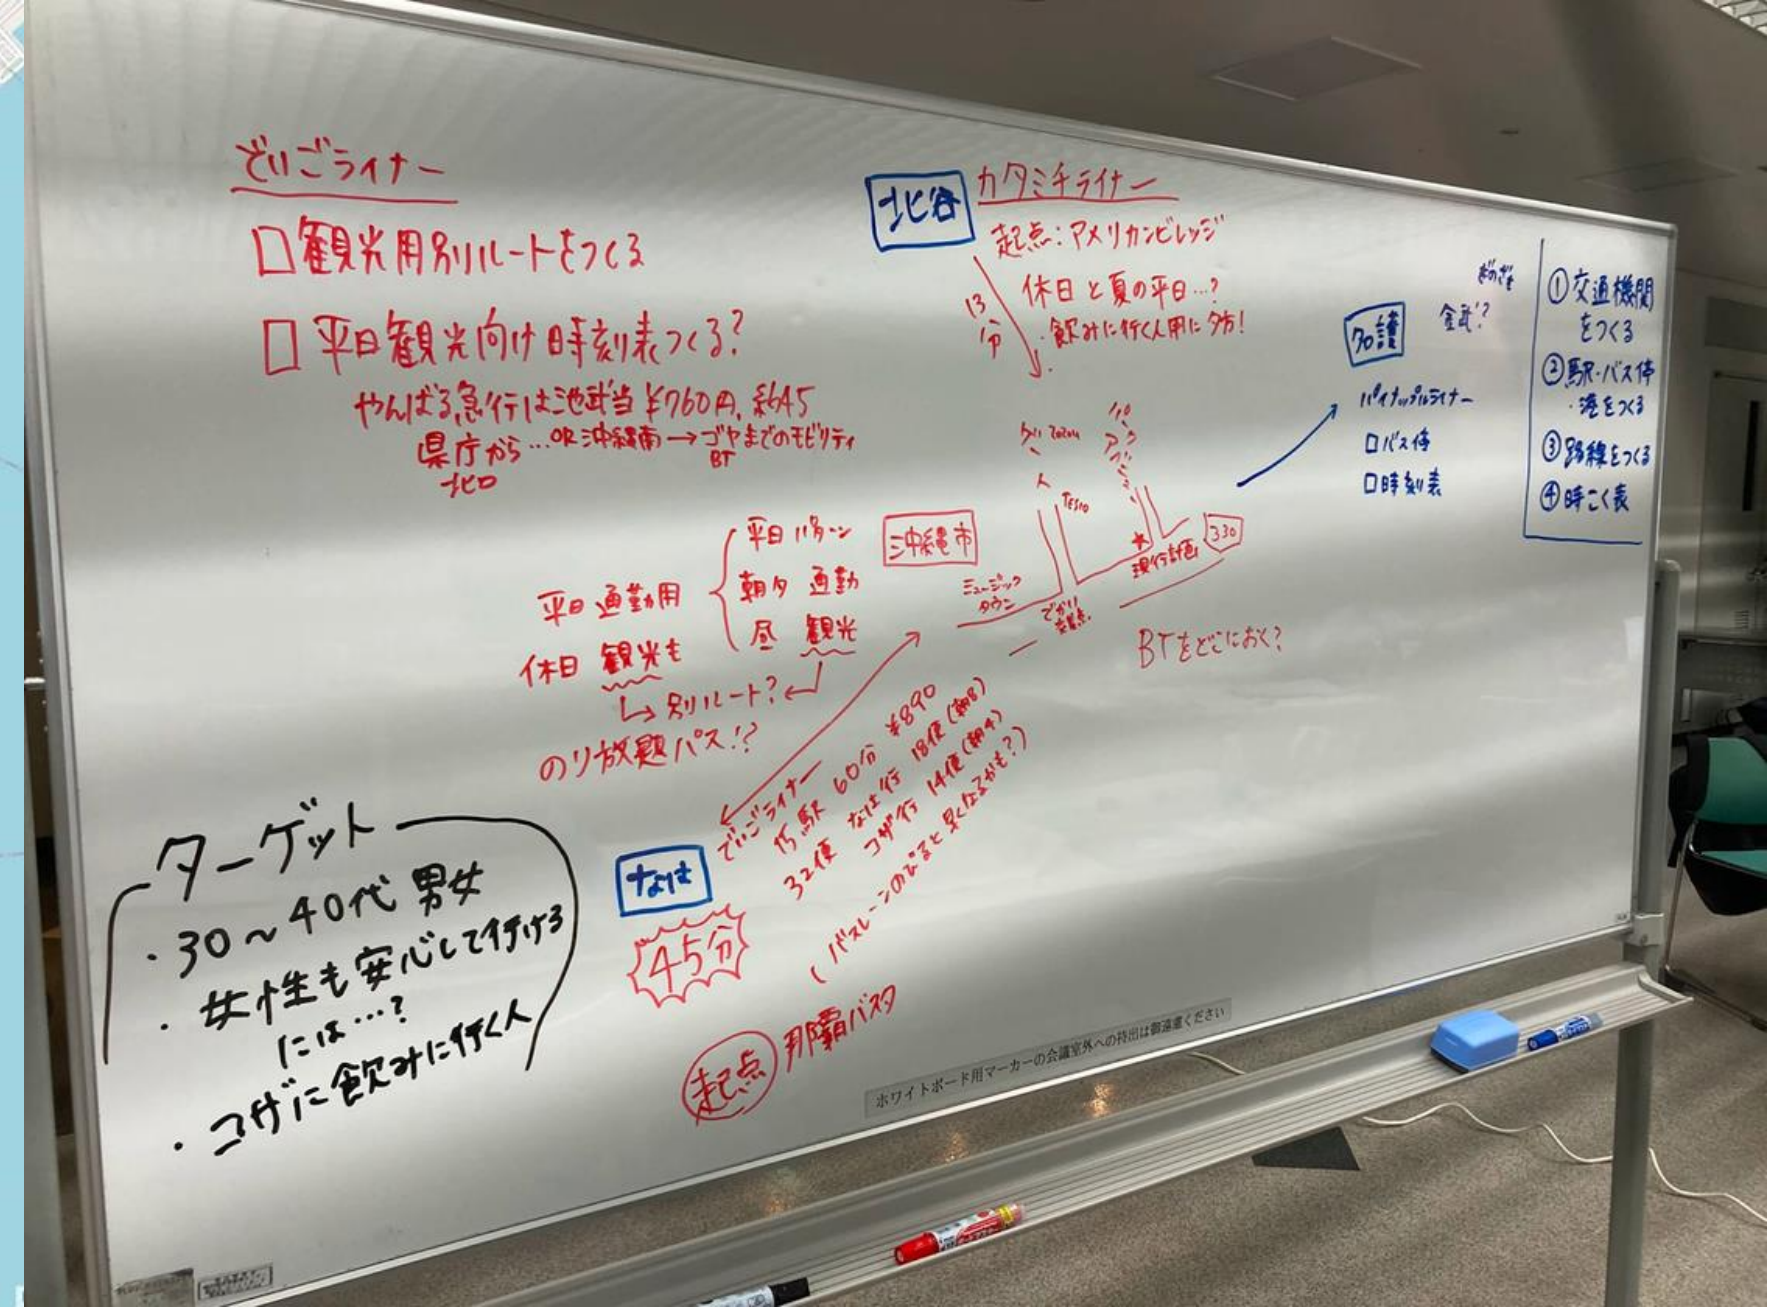 でいごライナー
□観光用別ルートをつくる
□平日観光向け時刻表つくる?
やんばる急行は池武当¥760円、約45
県庁から…OR沖縄南→ゴヤまでのモビリティ
北口
BT
平日通勤用
休日 観光も
平日パターン
朝夕 通勤
昼 観光
別ルート?
のり放題パス!?
ターゲット
・30~40代男女
・女性も安心して行ける
には…?
・コザに飲みに行く人
北谷
カタミチライナー
起点:アメリカンビレッジ
休日と夏の平日…?
・飲みに行く人用に夕方!
13
分
沖縄市
ミュージック
タウン
でかい
交差点
現行計画
330
BTをどこにおく?
でいごライナー
15駅 60分 ¥890
32便 なは行 18便(朝8)
コザ行 14便(朝4)
(バスレーンのびると早くなるかも?)
なは
45分
起点 那覇バスタ
ぎのざ
金武?
名護
パイナップルライナー
□バス停
□時刻表
①交通機関
をつくる
②駅・バス停
・港をつくる
③路線をつくる
④時こく表
ホワイトボード用マーカーの会議室外への持出は御遠慮ください